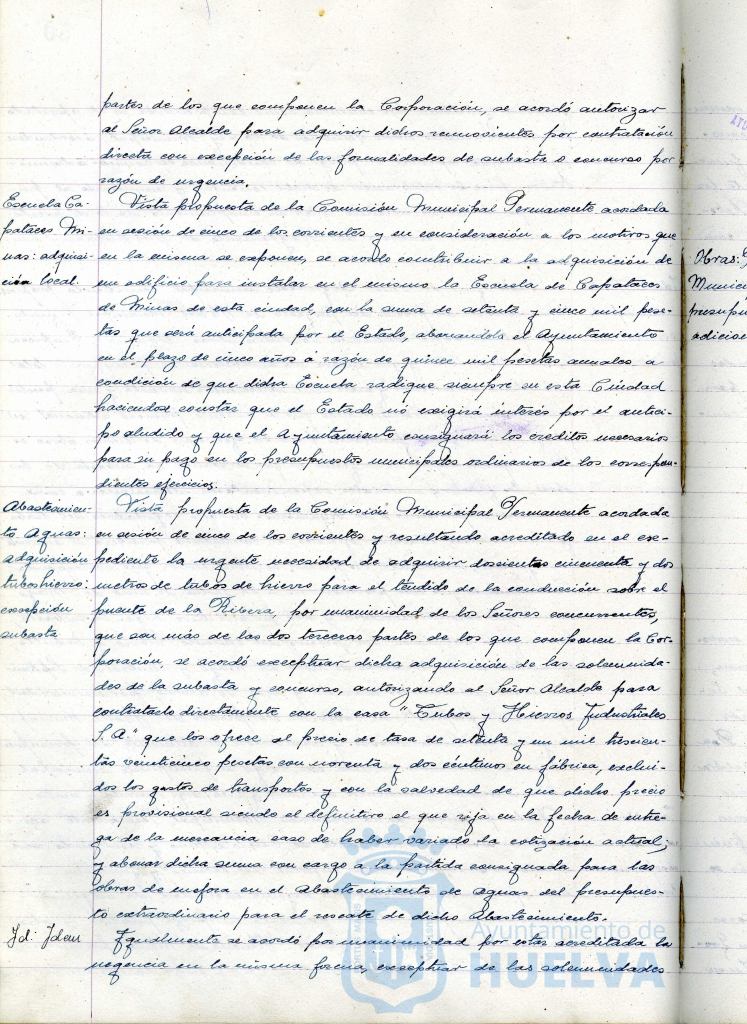 partes de los que componen la Corporación, se acordó autorizar
al Señor Alcalde para adquirir dichos semovientes por contratación
directa con excepción de las formalidades de subasta o concurso por
razón de urgencia.
Escuela Ca-
pataces Mi-
nas: adquisi-
ción local.
Vista propuesta de la Comisión Municipal Permanente acordada
en sesión de cinco de los corrientes y en consideración a los motivos que
en la misma se exponen, se acordó contribuir a la adquisición de
un edificio para instalar en el mismo la Escuela de Capataces
de Minas de esta ciudad, con la suma de setenta y cinco mil pese-
tas que será anticipada por el Estado, abonandola el Ayuntamiento
en el plazo de cinco años á razón de quince mil pesetas anuales a
condición de que dicha Escuela radique siempre en esta Ciudad
haciendose constar que el Estado nó exigirá interés por el antici-
po aludido y que el Ayuntamiento consignará los creditos necesarios
para su pago en los presupuestos municipales ordinarios de los correspon-
dientes ejercicios.
Abastecimien-
to Aguas:
adquisición
tubos hierro:
excepción
subasta
Vista propuesta de la Comisión Municipal Permanente acordada
en sesión de cinco de los corrientes y resultando acreditado en el ex-
pediente la urgente necesidad de adquirir doscientos cincuenta y dos
metros de tubos de hierro para el tendido de la conducción sobre el
puente de la Ribera, por unanimidad de los Señores concurrentes,
que son más de las dos terceras partes de los que componen la Cor-
poración, se acordó exceptuar dicha adquisición de las solemnida-
des de la subasta y concurso, autorizando al Señor Alcalde para
contratarlo directamente con la casa "Tubos y Hierros Industriales
S.A." que los ofrece al precio de tasa de setenta y un mil trescien-
tas veinticinco pesetas con noventa y dos céntimos en fábrica, exclui-
dos los gastos de transportes y con la salvedad de que dicho precio
es provisional siendo el definitivo el que rija en la fecha de entre-
ga de la mercancia caso de haber variado la cotización actual;
y abonar dicha suma con cargo a la partida consignada para las
obras de mejora en el Abastecimiento de Aguas del presupues-
to extraordinario para el rescate de dicho Abastecimiento.
Id: Idem
Igualmente se acordó por unanimidad por estar acreditada la
urgencia en la misma forma, exceptuar de las solemnidades
Obras:
Munici
presupu
adicion
Ayuntamiento de
HUELVA